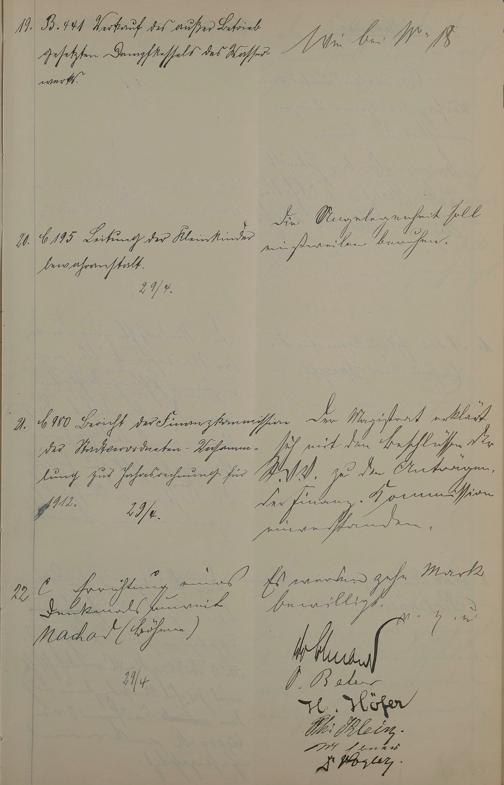 19. B. 441 Verkauf des außer Betrieb
gesetzten Dampfkessels des Wasser-
werks.
Wie bei No 18
20. C 195 Leitung der Kleinkinder
bewahranstalt.
29/4.
Die Angelegenheit soll
einstweilen beruhen.
21. C 980 Bericht der Finanzkommission
der Stadtverordneten-Versamm-
lung zur Jahresrechnung für
1912.
29/4.
Der Magistrat erklärt
sich mit den Beschlüssen der
St.V.V. zu den Anträgen
der Finanz-Kommission
einverstanden.
22 C Errichtung eines
Denkmals unweit
Nachod (Böhmen)
29/4
Es werden zehn Mark
bewilligt.
v. g. u.
H. Höfer
Ph. Klein.